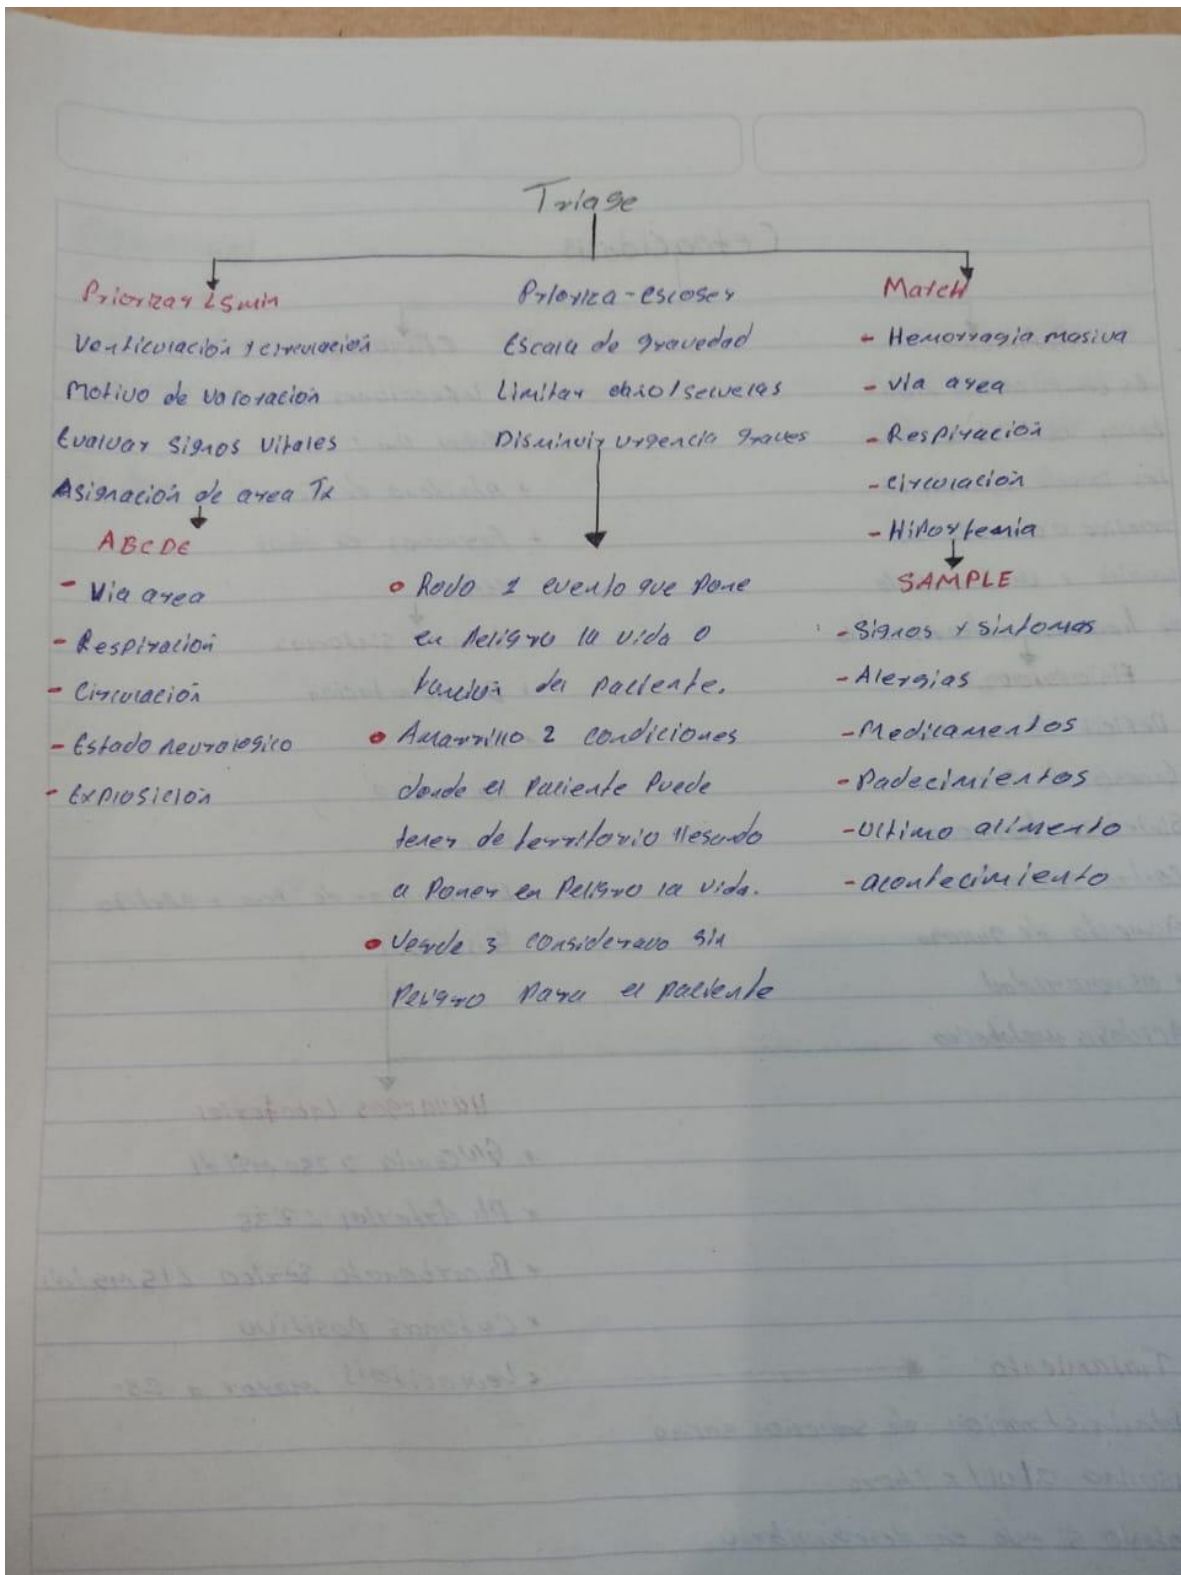 Triage
Priorizar <5min
Venticulación y circulación
Motivo de valoración
Evaluar Signos Vitales
Asignación de area Tx
ABCDE
- Via area
- Respiración
- Circulación
- Estado neurologico
- Explosición
Prioriza - escoger
Escala de gravedad
Limitar daño/secuelas
Disminuir urgencia graves
• Rodo 1 evento que pone
en peligro la vida o
función del paciente.
• Amarrillo 2 condiciones
donde el paciente puede
tener de territorio llegando
a poner en peligro la vida.
• Verde 3 considerado sin
peligro para el paciente
March
- Hemorragia masiva
- via area
- Respiración
- circulación
- Hiportemia
SAMPLE
- Signos y sintomas
- Alergias
- Medicamentos
- Padecimientos
- Ultimo alimento
- acontecimiento